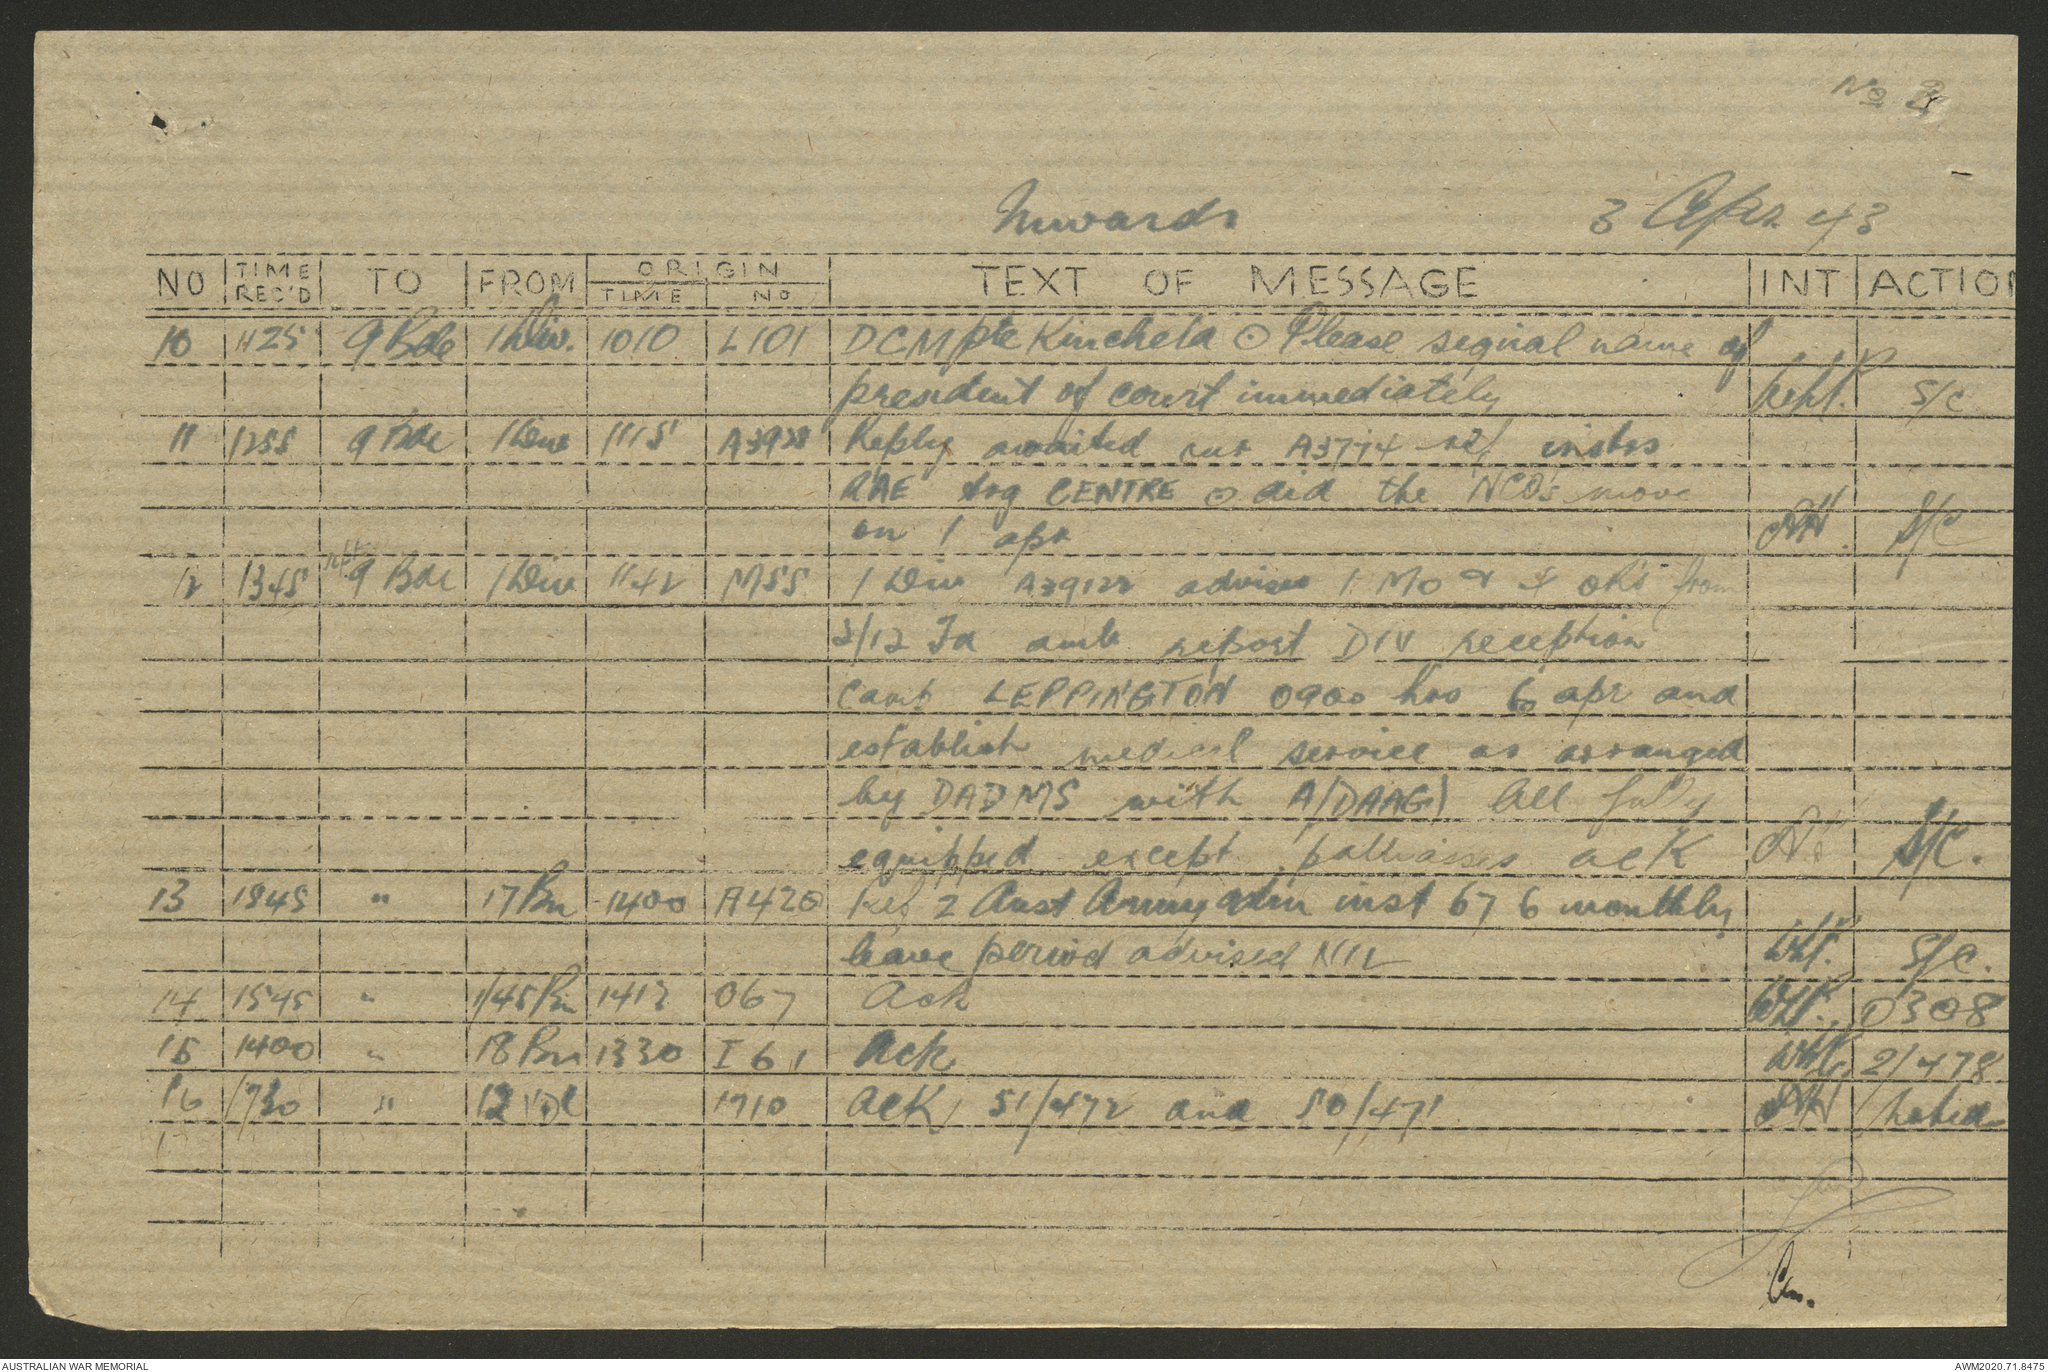 No 2
Inwards 3 Apr 43
NO TIME REC'D TO FROM ORIGIN TIME NO TEXT OF MESSAGE INT ACTION
10 1125 9 Bde 1 Div. 1010 L101 DCM pte Kinchela ⊙ Please signal name of
president of court immediately S/C
11 1255 9 Bde 1 Div 1115 A3928 Reply awaited our A3774 ref instrs
RAE trg CENTRE ⊙ did the NCOs move
on 1 apr S/C
12 1345 rpt 9 Bde 1 Div 1142 M55 1 Div A39122 advises 1 MO & 4 ORs from
2/12 Fd amb report DIV reception
camp LEPPINGTON 0900 hrs 6 apr and
establish medical service as arranged
by DADMS with A/DAAG) All fully
equipped except palliasses ack S/C.
13 1845 " 17 Bn 1400 A420 Ref 2 Aust Army adm inst 676 monthly
leave period advised NIL S/C.
14 1545 " 1/45 Bn 1412 O67 Ack O308
15 1400 " 18 Bn 1330 I61 Ack 21/478
16 1730 " 12 VDC 1710 ACK, 51/472 and 50/471
17
AUSTRALIAN WAR MEMORIAL AWM2020.71.8475